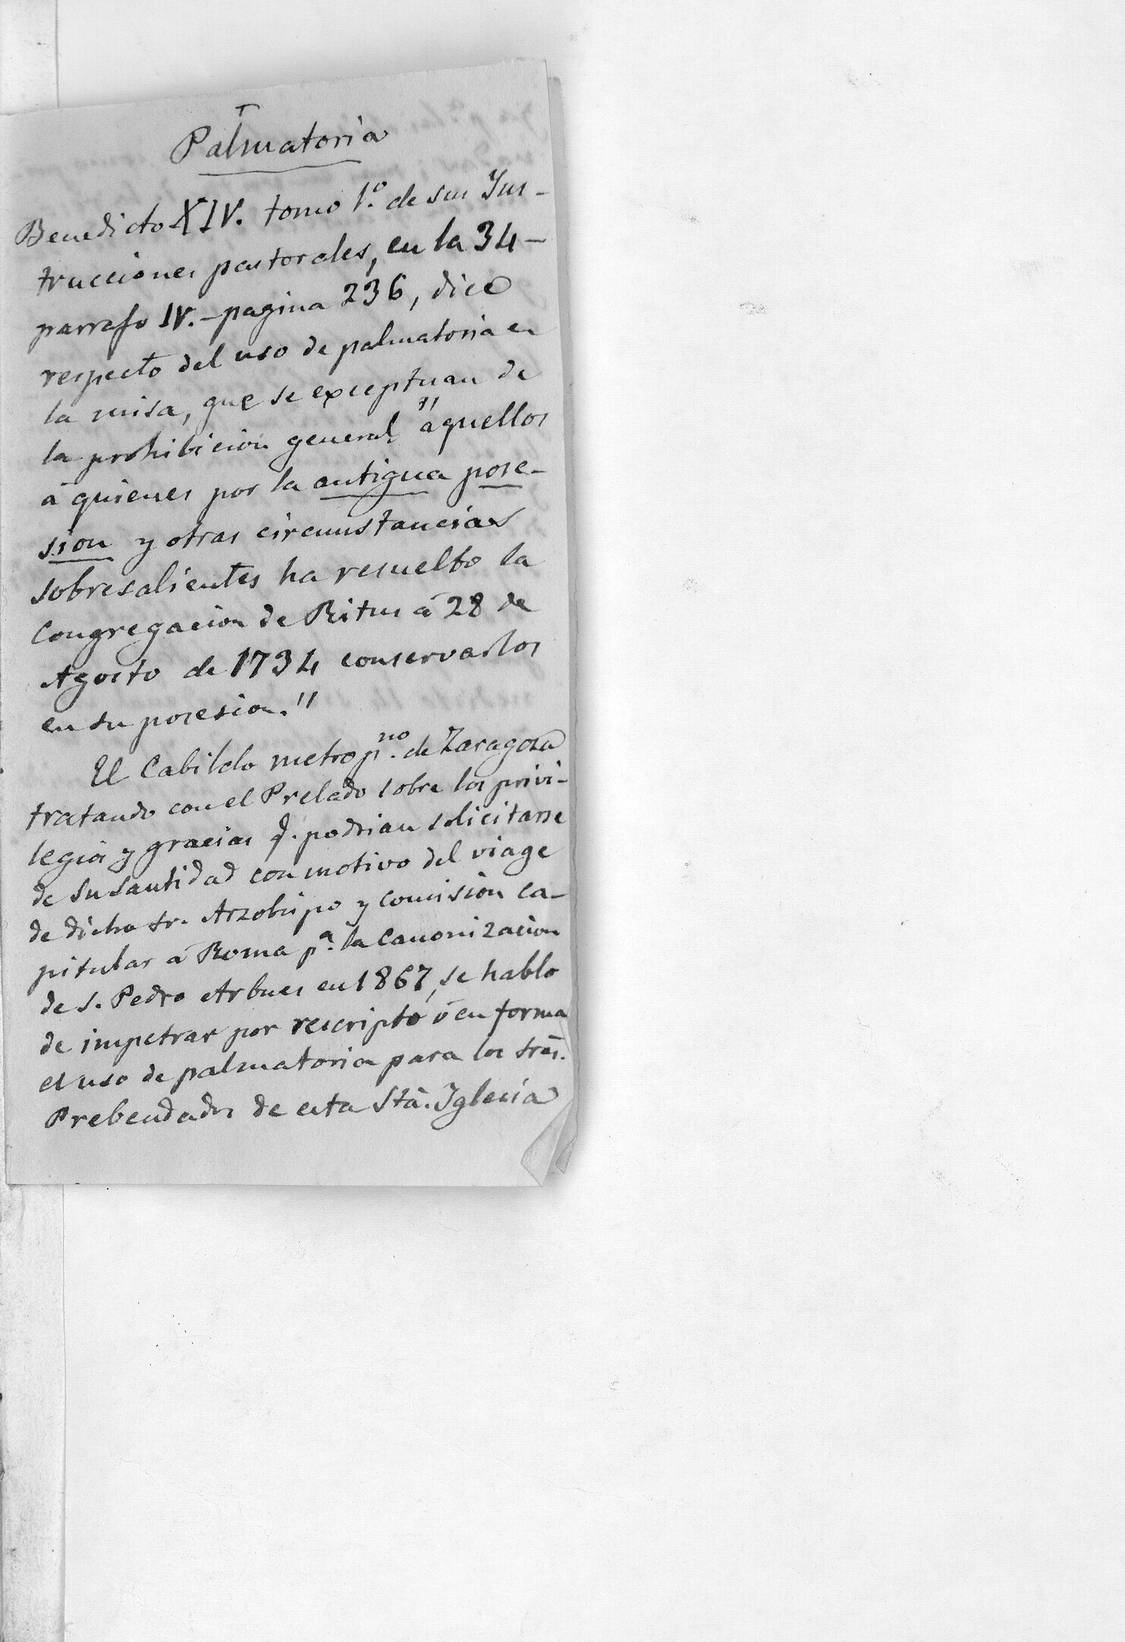 Palmatoria
Benedicto XIV. tomo 1.º de sus Ins-
trucciones pastorales, en la 34-
parrafo IV.-pagina 236, dice
respecto del uso de palmatoria en
la misa, que se exceptuan de
la prohibicion general "aquellos
á quienes por la antigua pose-
sion y otras circunstancias
sobresalientes ha resuelto la
Congregacion de Ritus á 28 de
Agosto de 1734 conservarlos
en su posesion."
El Cabildo metrop.no de Zaragoza
tratando con el Prelado sobre los privi-
legios y gracias q. podrian solicitarse
de Su Santidad con motivo del viage
de dicho Sr. Arzobispo y Comision ca-
pitular á Roma p.a la Canonizacion
de S. Pedro Arbues en 1867, se hablo
de impetrar por rescripto ó en forma
el uso de palmatoria para los Sres.
Prebendados de esta Sta. Iglesia